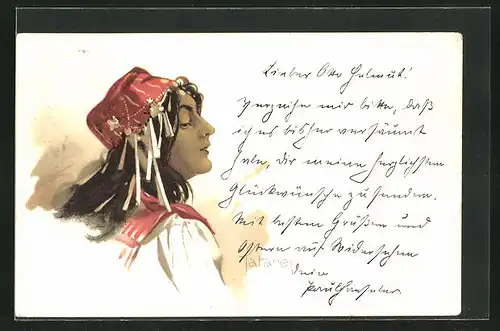 Lieber Otto Helmut!
Verzeihe mir bitte, daß
ich es bisher versäumt
habe, dir meine herzlichsten
Glückwünsche zu senden.
Mit besten Grüßen und
Ostern auf Wiedersehen
dein
Paul